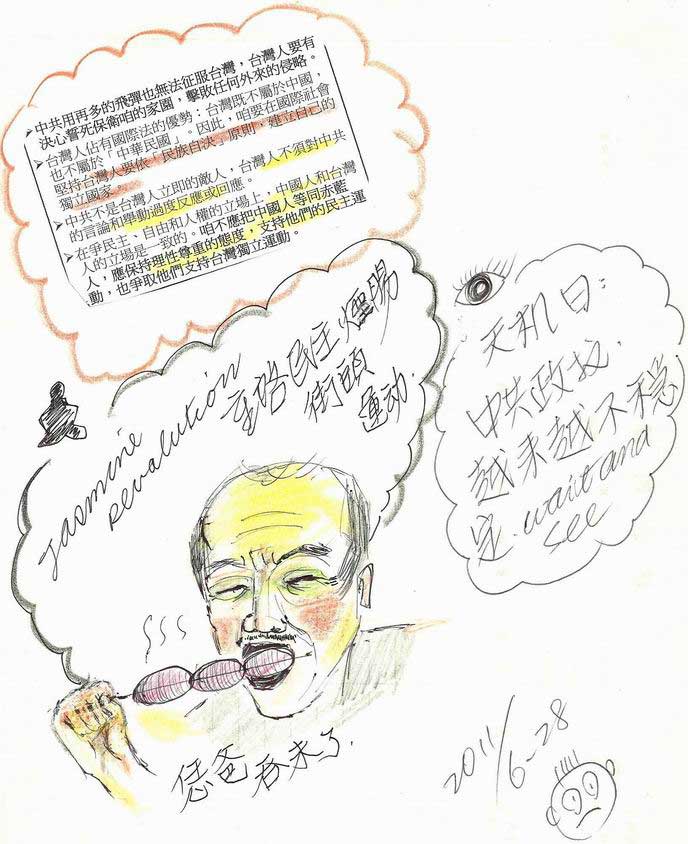 ➢中共用再多的飛彈也無法征服台灣，台灣人要有
決心誓死保衛咱的家園，擊敗任何外來的侵略。
➢台灣人佔有國際法的優勢：台灣既不屬於中國，
也不屬於「中華民國」。因此，咱要在國際社會
堅持台灣人要依「民族自決」原則，建立自己的
獨立國家。
➢中共不是台灣人立即的敵人，台灣人不須對中共
的言論和舉動過度反應或回應。
➢在爭民主、自由和人權的立場上，中國人和台灣
人的立場是一致的。咱不應把中國人等同赤藍
人，應保持理性尊重的態度，支持他們的民主運
動，也爭取他們支持台灣獨立運動。
Jasmine
Revalution
民主
街頭
運动.
天机曰：
中共政权.
越来越不穏
定.wait and
see
恁爸
来了.
2011/6-28